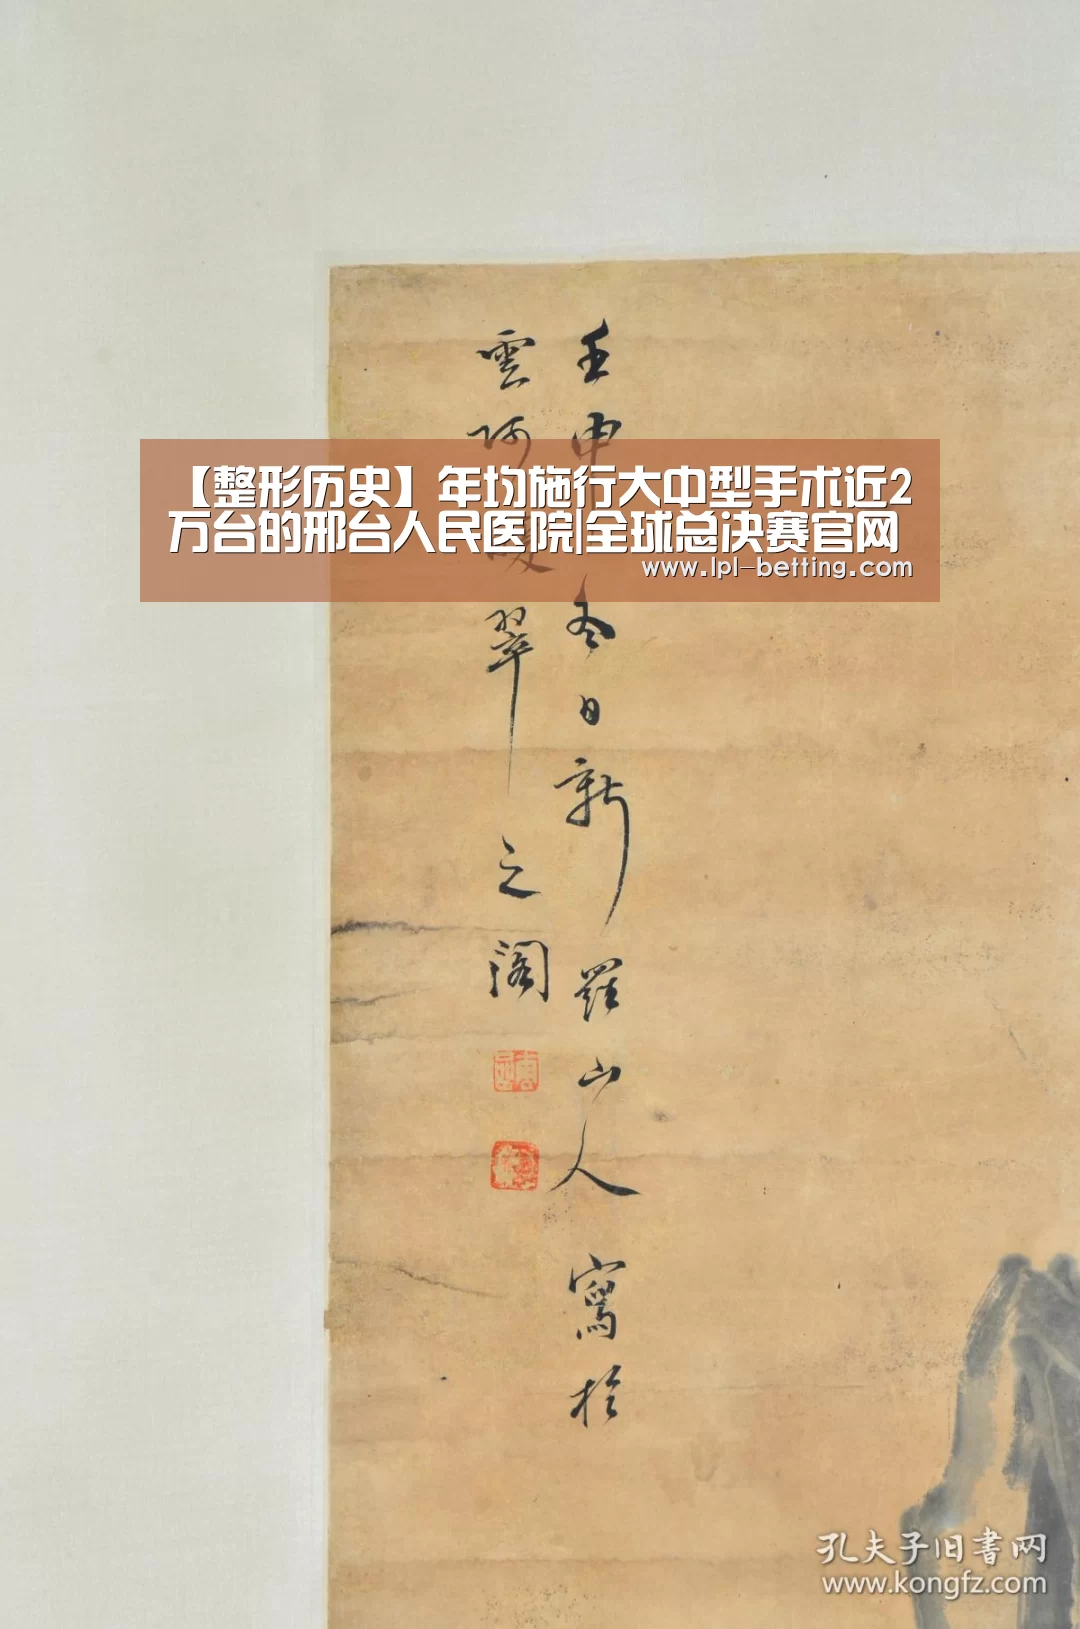 【整形历史】年均施行大中型手术近2
万台的邢台人民医院|全球总决赛官网
www.lpl-betting.com
壬申
冬日新羅山人寫於
雲阿
翠之閣
孔夫子旧書网
www.kongfz.com